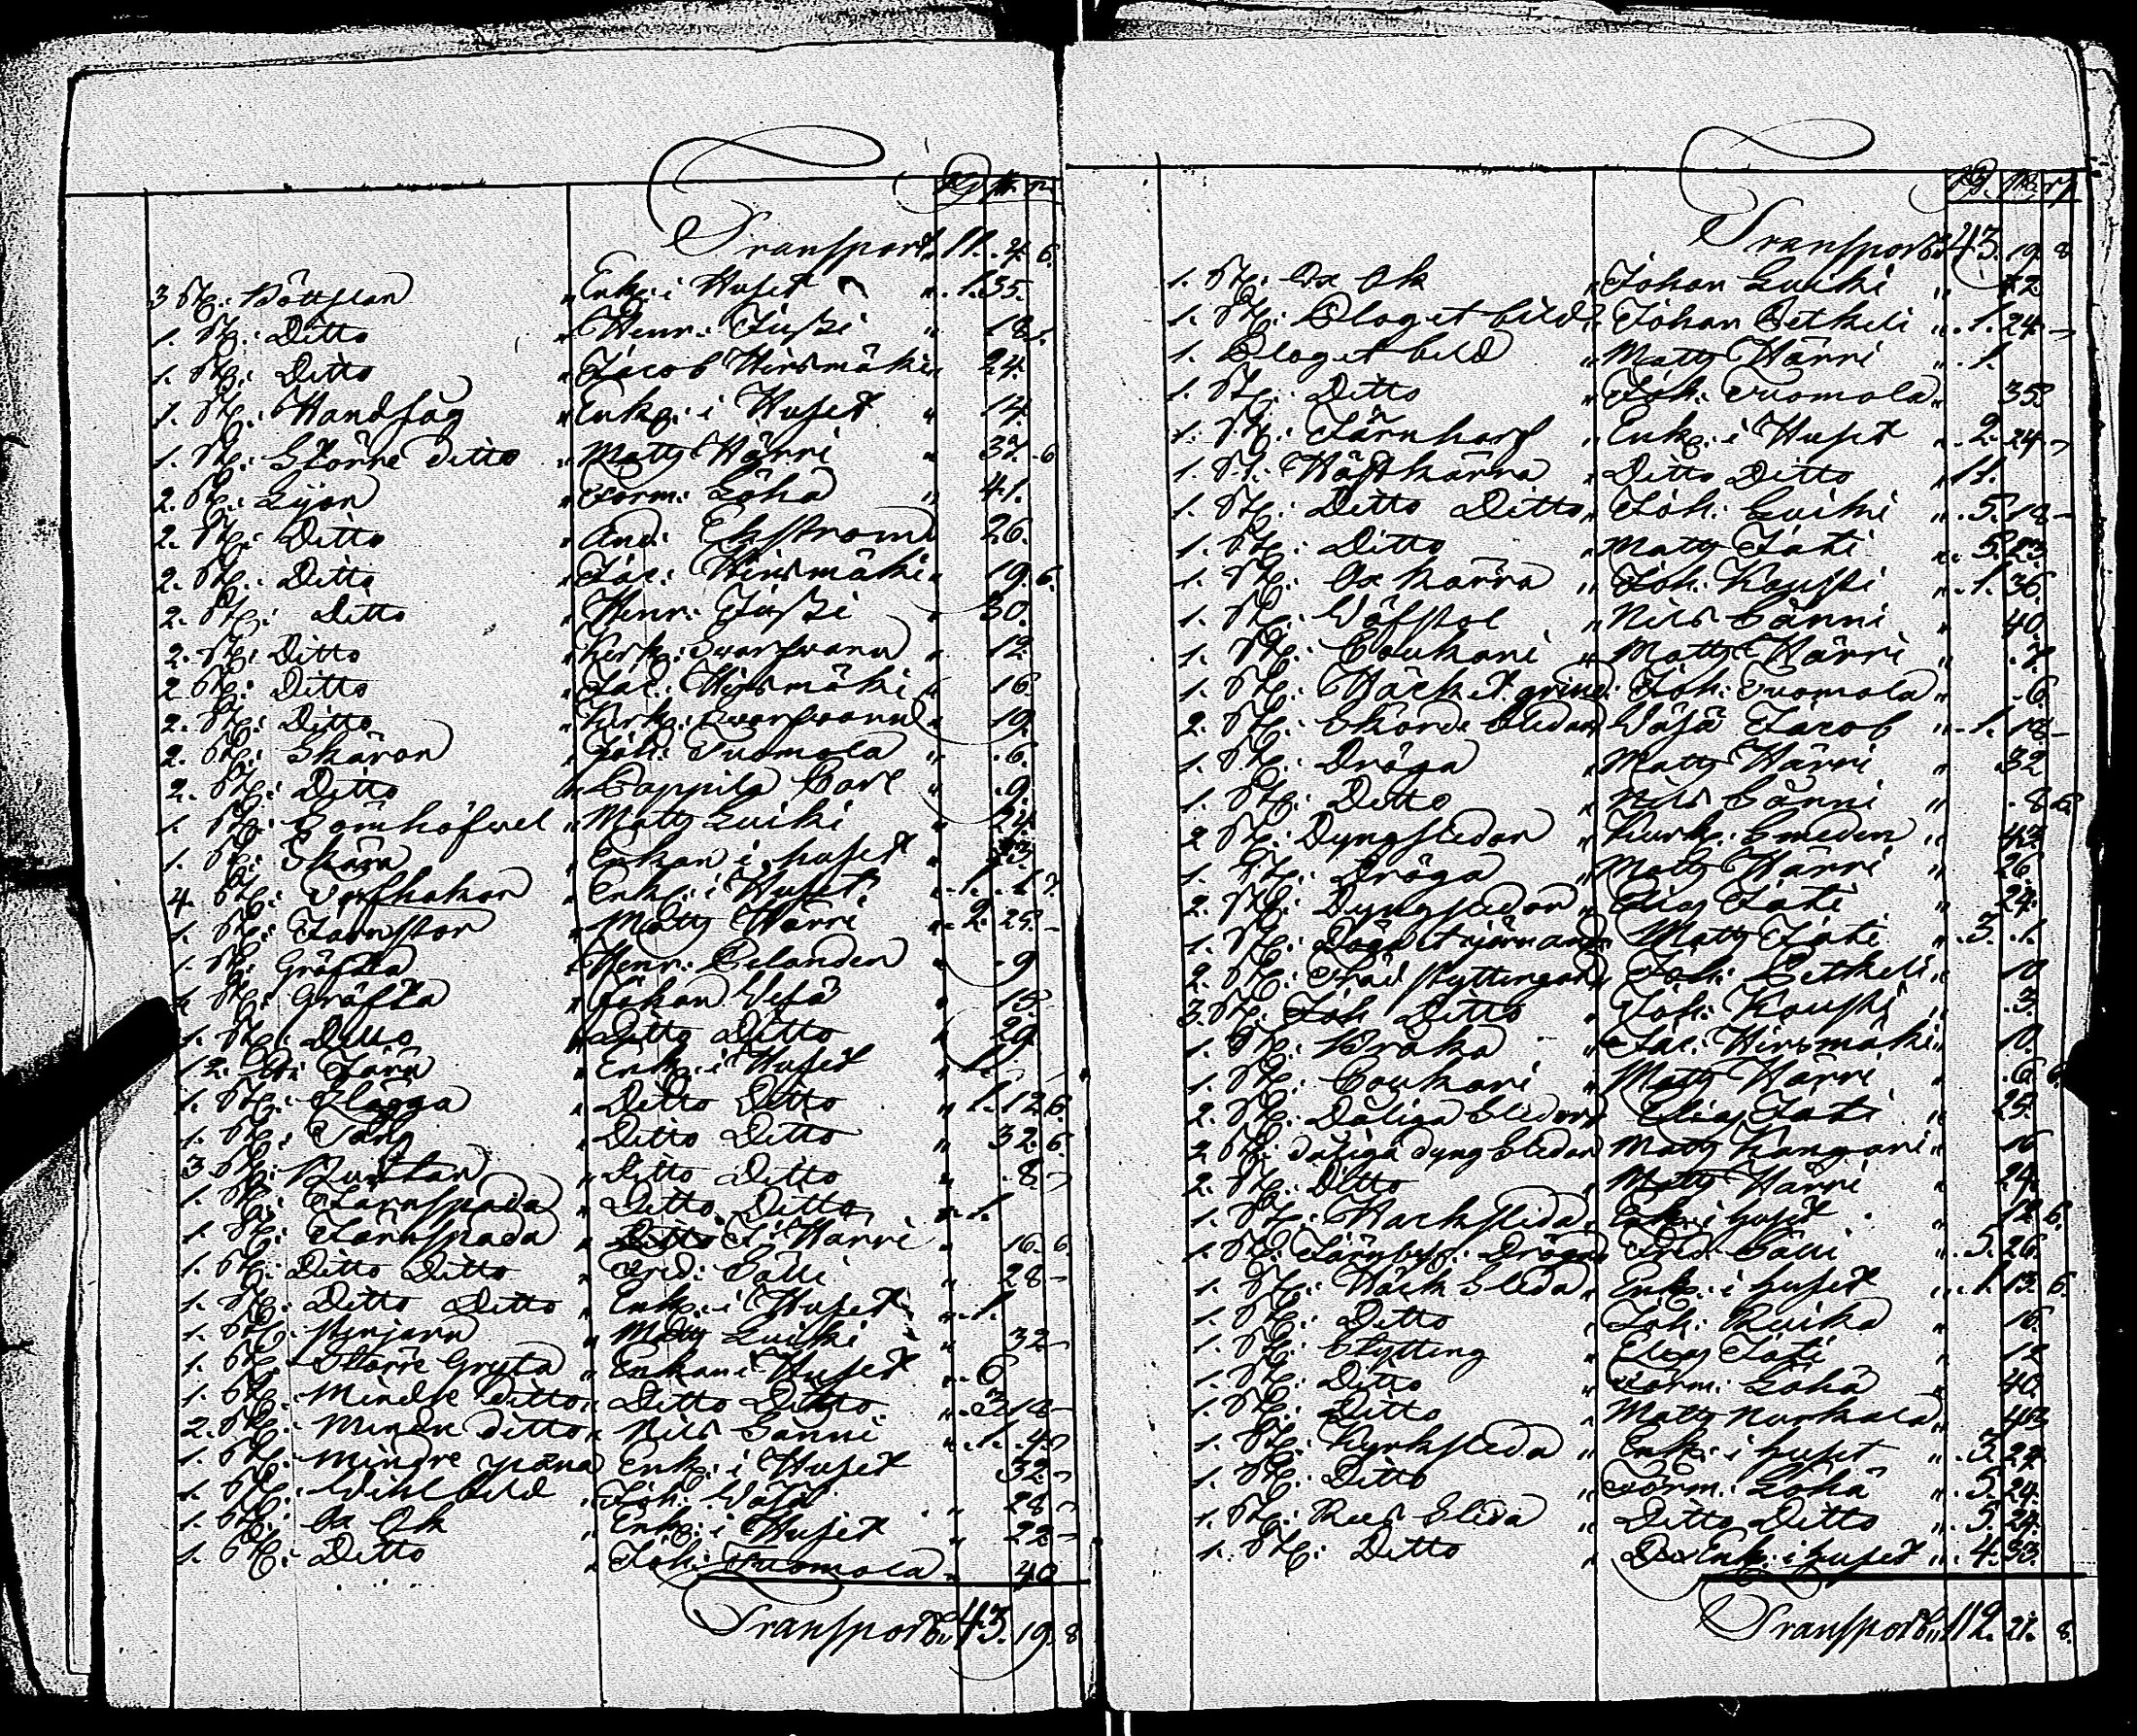 Rd. sk. r.
Transport 11. 4. 6.
3 St: Böttjlan " Enk: i Huset " 1. 35.
1. St: Ditto " Henr: Juszi " 18.
1. St: Ditto " Jacob Hirsmäki " 24.
1. St: Handsåg " Enk: i Huset " 14.
1. St: Större Ditto " Matts Härri " 37. 6
2. St: Lijon " Form: Löhä " 41.
2. St: Ditto " And: Ekström 26.
2. St: Ditto " Jac: Hirsmäki " 19. 6.
2. St: Ditto " Henr: Juszi " 30.
2. St: Ditto " Kirk: " 12
2. St: Ditto " Jac: Hirsmäki " 16
2. St: Ditto " Kirk: " 19
2. St: Skäron " Joh: Tuomola " 6.
2. St: Ditto " Cappila Carl " 9.
1. St: " Matts Luiki "
1. St: Skära " Enkan i huset "
4. St: " Enk: i Huset " 1.
1. St: Järnstör " Matts Härri " 2. 25.
1. St: Gräfta " Henr: Selanden " 9
St: Gräfta " Johan Wäjä " 15
1. St: Ditto " Ditto Ditto " 29
12. Järn " Enk: i Huset " 1.
1. St: Slägga " Ditto Ditto " 1. 12. 6.
1. St: " Ditto Ditto " 32. 6.
3 St: " Ditto Ditto " 8.
1. St: Järnspada " Ditto Ditto " 1.
1. St: Järnspada " J: Härri " 16. 6.
1. St: Ditto Ditto " Fred: Sälli " 28
1. St: Ditto Ditto " Enk: i Huset " 1.
1. St: " Matts Luiki " 32
1. St: Större Gryta " Enkan i Huset " 6
1. St: Mindre Ditto " Ditto Ditto " 3 18
2. St: Mindre Ditto " Nils Sänni " 1. 4.
1. St: Mindre pana Enk: i Huset 32
1. St: " Joh: Wäjä " 28
1. St: Ox Ok " Enk: i Huset " 22
1. St: Ditto " Joh: Tuomola " 40
Transport 43. 19. 8
Rd. sk. r.
Transport 43. 19. 8
1. St: Ox Ok " Johan Luiki "
1. St: Plogetbild " Johan Petheli " 1. 24.
1. Plogetbild " Matts Härri " 1.
1. St: Ditto " Joh: Tuomola " 35
1. St: Järnharf " Enk: i Huset " 2. 24
1. St: Hästkärra " Ditto Ditto " 11.
1. St: Ditto Ditto " Joh: Luiki " 5. 18
1. St: Ditto " Matts Jati " 5. 23
1. St: Ox kärra " Joh: Kauppi " 1. 36
1. St: Wäfstol " Nils Sänni " 40
1. St: Coukari " Matts Härri " 7.
1. St: Häcket grind " Joh: Tuomola " 6
2. St: Skörde Slidar Wäjä Jacob " 1. 18
1. St: Dröga " Matts Härri " 32
1. St: Ditto " Nils Sänni " 8 6
2 St: Dyngsledor " Kurk: Smeden " 42
1. St: Dröga " Matts Härri " 26
2. St: Dyngsledor " Elias Jati " 24
1. St: Matts Jati " 3. 1.
2. St: Joh: Petheli " 10
3. St: Ditto " Joh: Kauppi 3
1. St: Kraka " Jac: Hirsmäki " 10.
1. St: Coukari " Matts Härri " 6 6
2. St: Dåliga Sledor " Elias Jati " 25
2 St: dåliga dyng Sledor Matts Kangari " 16
2. St: Ditto " Matts Härri " 24
1. St: " Enk: i huset " 12 6.
1. St: Järnbesl: Dröga " Fred: Sälli " 5. 26
1. St: Häck Sleda " Enk: i huset " 1. 13. 6.
1. St: Ditto " Joh: Kuika " 16
1. St: Skytting " Elias Jati " 12
1. St: Ditto " Form: Löhä " 40
1. St: Ditto " Matts Nurkala " 42
1. St: Kyrksleda " Enk: i huset " 3. 24
1. St: Ditto " Form: Löhä " 5. 24
1. St: Rees Slida " Ditto Ditto " 5. 24
1. St: Ditto " Enk: i huset " 4. 33.
Transport 112. 21. 8.